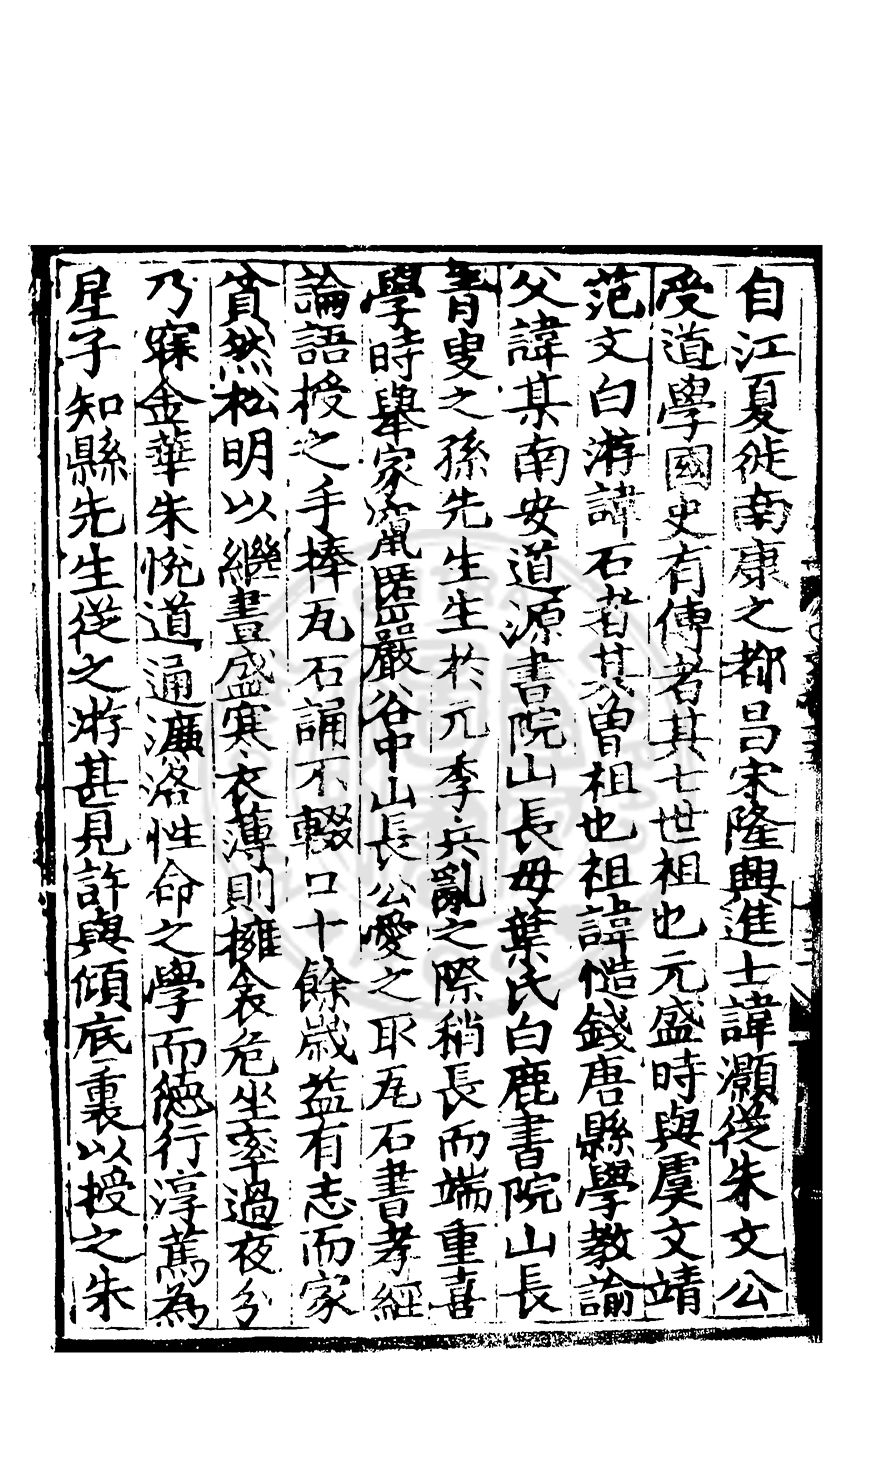 自江夏徙南康之都昌宋隆興進士諱灝從朱文公
受道學國史有傳者其七世祖也元盛時與虞文靖
范文白游諱石者其曾祖也祖諱愷錢唐縣學教諭
父諱某南安道源書院山長毋葉氏白鹿書院山長
青叟之孫先生生於元季兵亂之際稍長而端重喜
學時舉家竄匿嚴谷中山長公愛之取瓦石書孝經
論語授之手捧瓦石誦不輟口十餘歲益有志而家
貧然松明以繼晝盛寒衣薄則擁衾危坐率過夜分
乃寐金華朱悅道通濂洛性命之學而德行淳篤為
星子知縣先生從之游甚見許與傾底裏以授之朱